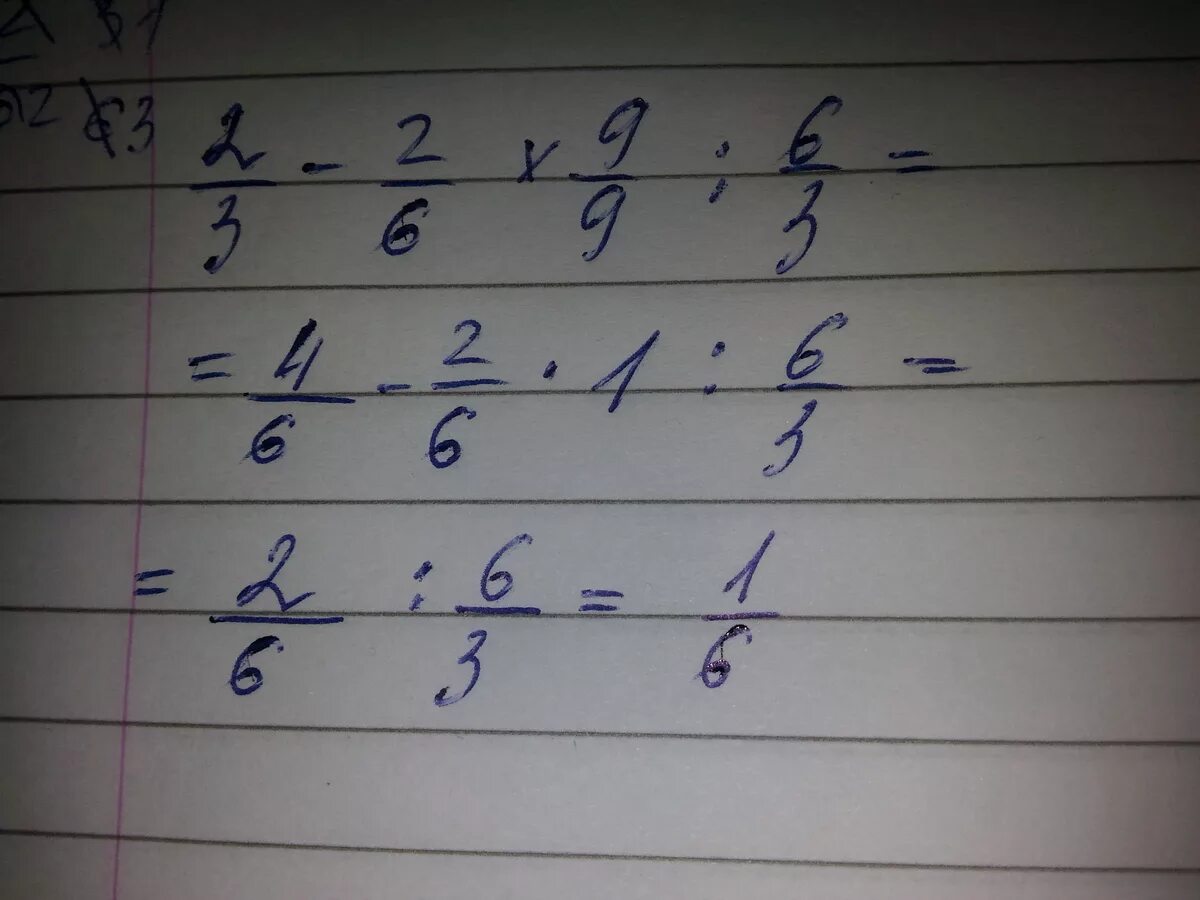 2/3 - 2/6 x 9/9 : 6/3 =
= 4/6 - 2/6 · 1 : 6/3 =
= 2/6 : 6/3 = 1/6